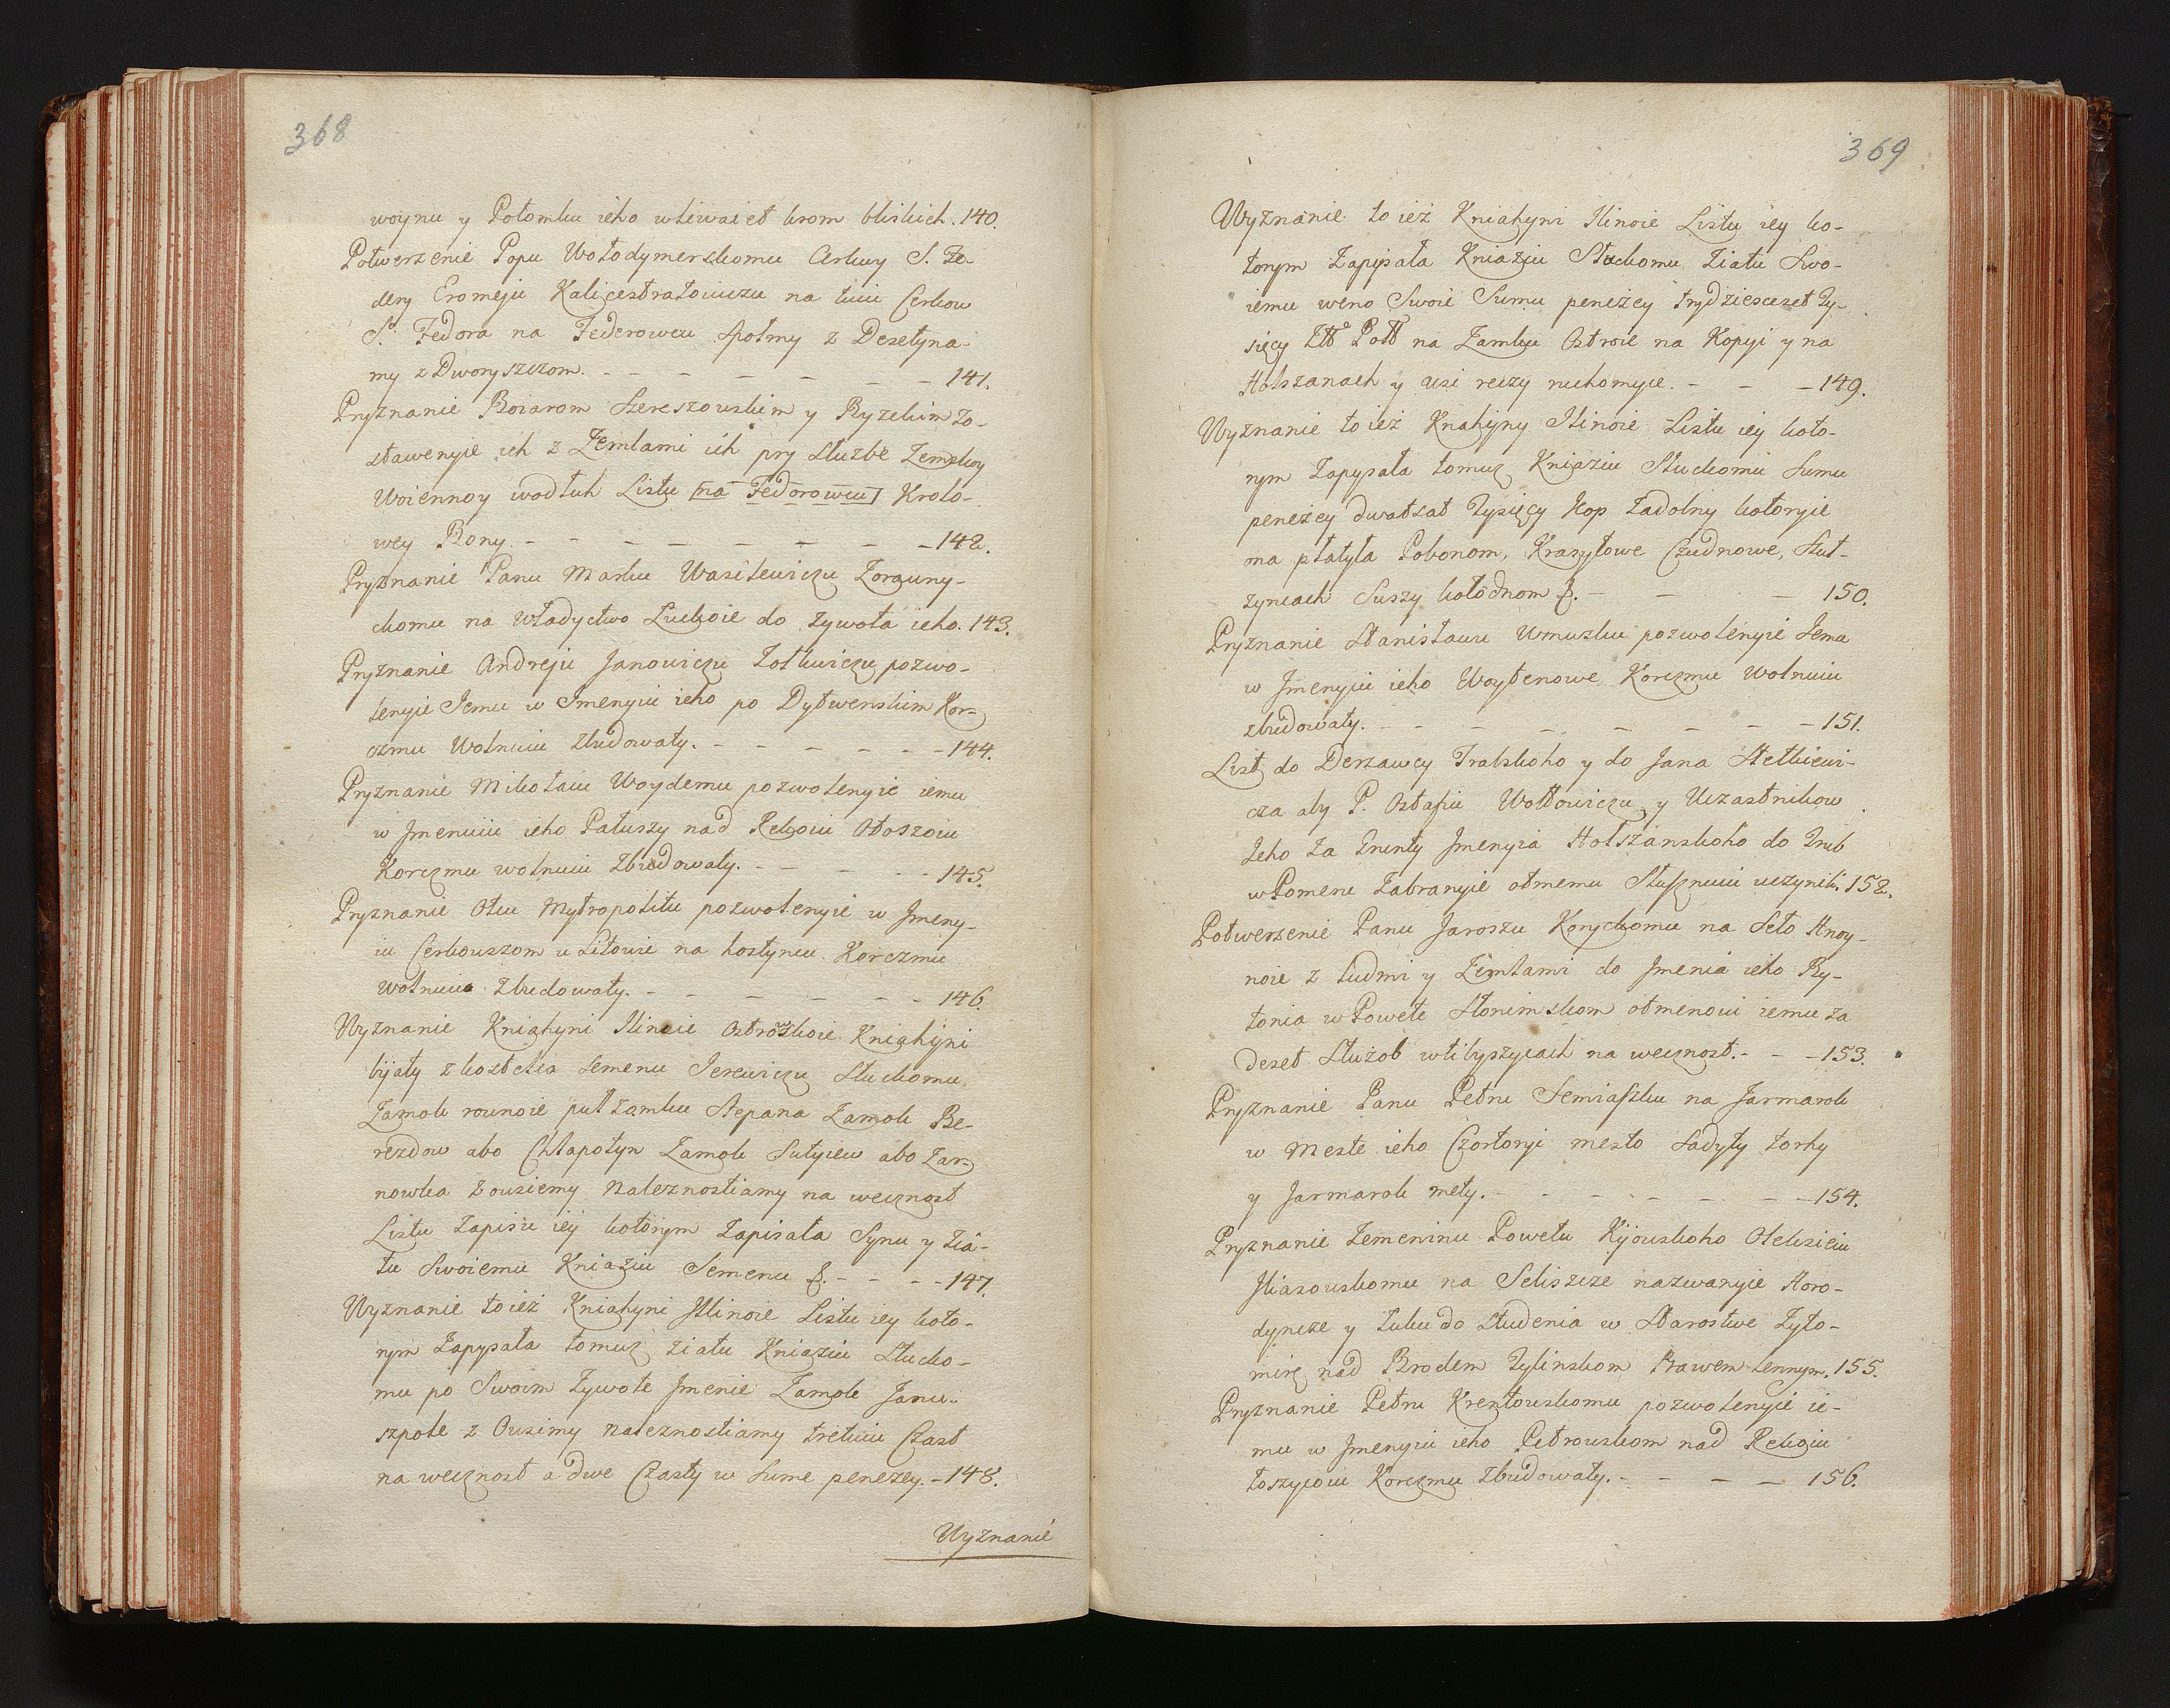 368
woynu y Potomku ieho wliwaiet krom blikich. 140.
Potwerzenie Popu Wołodymerskomu Cerkwy S. Fe-
dery Eromeju Kaligestratowiczu na tuiu Cerkow
St. Fedora na Federowcu spolmy z Desetyna-
my z Dworyszczom. - - - - - - - 141.
Pryznanie Boiarom Szereszowskim y Ryzskim zo-
stawenyie ich z Zemlami ich pry Służbe Zemskoy
Woiennoy wodłuh Listu [na Fedorowcu] Krolo-
wey Bony. - - - - - - - - 142.
Pryznanie Panu Marku Wasilewiczu Zorauny-
ckomu na Władyctwo Luckoie do żywota ieho. 143.
Pryznanie Andreju Janowiczu Zołkwiczu pozwo-
lenyie Iemu w Imenyiu ieho po Dytwenskim Kor-
czmu Wolnuiu zbudowaty. - - - - - - 144.
Pryznanie Mikołaiu Woydemu pozwolenyie iemu
w Jmeniiu ieho Patuszy nad Rekoiu Otoszoiu
Korczmu wolnuiu zbudowaty. - - - - - 145.
Pryznanie Otcu Mytropolitu pozwolenyie w Jmeny-
iu Cerkowszom u Litowie na hostyncu Korczmu
wolnuiu zbudowaty. - - - - - - 146.
Wyznanie Kniahyni Ilinoie Ostrozkoie Kniahyni
bijaty z kostcka Semenu Jerewiczu Sluckomu,
Zamok rownoie puł zamku Stepana Zamok Be-
rezdow abo Chłapotyn Zamok Sutyiew abo Zar-
nowka z ousiemy Należnostiamy na wecznost
Listu Zapisu iey kotorym zapisała Synu y Zia-
tu Swoiemu Kniaziu Semenu &. - - - - 147.
Wyznanie toież Kniahyni Illinoie Listu iey koto-
rym Zapysała tomuz ziatu Kniaziu Slucko-
mu po Swoim Zywote Jmenie Zamok Janu-
szpole z Ousimy należnostiamy tretuiu Czast
na wecznost a dwe Czasty w Sume penezey. - 148.
Wyznanie
369
Wyznanie toież Kniahyni Ilinoie Listu iey ko-
torym Zapysała Kniaziu Sluckomu Ziatu Swo-
iemu weno Swoie Sumu peneżey trydziesceset Ty-
sięcy Złł Połł na Zamku Ostroie na Kopyi y na
Holszanach y usi reczy ruchomyie. - - - 149.
Wyznanie toież Knahyny Ilinoie Listu iey koto-
rym Zapysała tomuz Kniaziu Sluckomu Sumu
peneżey dwatsat Tysięcy Kop Zadolny kotoryie
ma płatyta Pobonom, Krasytowe Czudnowe, Szut-
zyncach Suszy kołodnom &. - - - 150.
Pryznanie Stanisławu Umuzku pozwolenyie Jemu
w Jmenyiu ieho Woytenowe Korczmu Wolnuiu
zbudowaty. - - - - - - - - 151.
List do Derzawcy Trabskoho y do Jana Stetkiewi-
cza aby P. Ostafiu Wołłowiczu y Uczastnikow
Jeho Za Grunty Jmenyia Holszanskoho do Grub
w Pomenu Zabranyie otmenu Słusznuiu uczynili. 152.
Potwerzenie Panu Jaroszu Koryckomu na Seło Hnoy-
noie z ludmi y Zemlami do Jmenia ieho By-
tonia w Powete Slonimskom otmenoiu iemu za
Deset Służob wlibyszycach na wecznost. - - - 153.
Pryznanie Panu Petru Semiaszku na Jarmarok
w Meste ieho Czortoryi mesto Sadyty torhy
y Jarmarok mety. - - - - - - - 154.
Pryznanie Zemeninu Powetu Kijouskoho Oleksieiu
Iliasouskomu na Seliszcze nazwanyie Horo-
dyncze y Łuhu do Studenia w Starostwe Zyto-
mirz nad Brodem Zylinskom Prawem lennym. 155.
Pryznanie Petru Krentouskomu pozwolenyie ie-
mu w Jmenyiu ieho Petrouskom nad Rekoiu
toszycoiu Korczmu zbudowaty. - - - - 156.